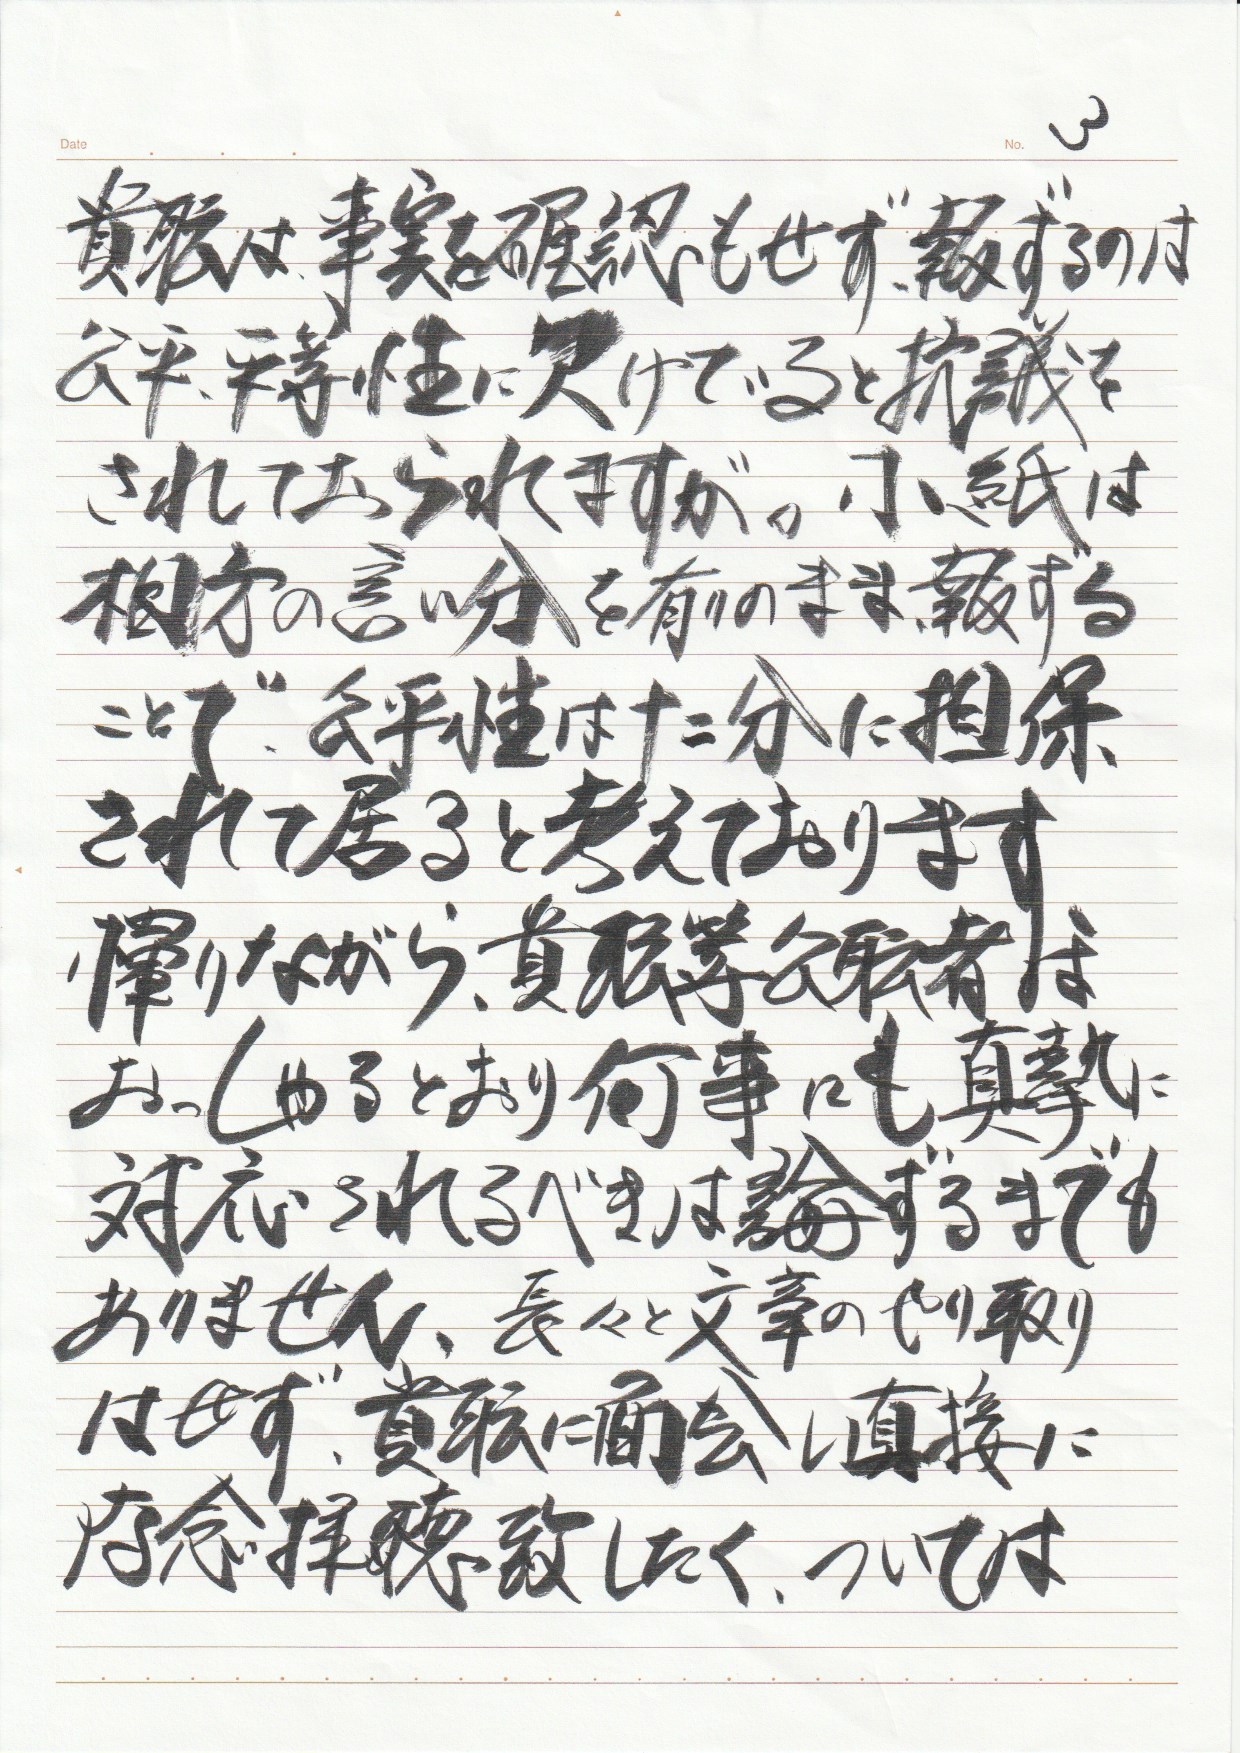 Date
No. 3
貴職は、事実を確認もせず、報ずるのは
公平、平等性に欠けていると抗議を
されておられますが。小紙は
相方の言い分を有りのまま、報ずる
ことで、公平性は十二分に担保
されて居ると考えております
憚りながら、貴職等公職者は
おっしゃるとおり何事にも真摯に
対応されるべきは論ずるまでも
ありません、長々と文章のやり取り
はせず、貴職に面会し直接に
存念拝聴致したく、ついては